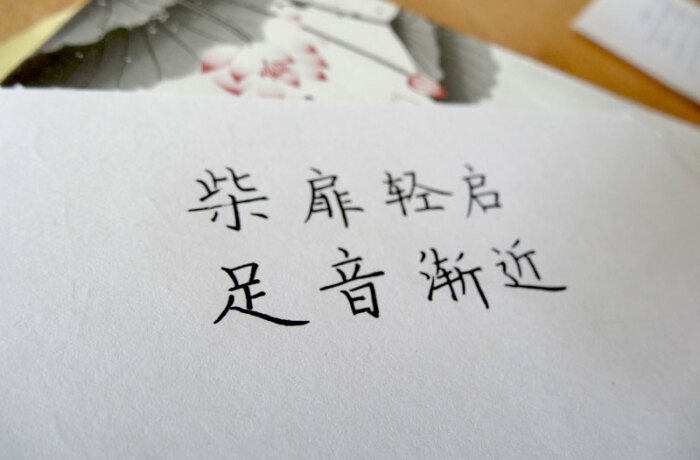 柴扉轻启
足音渐近